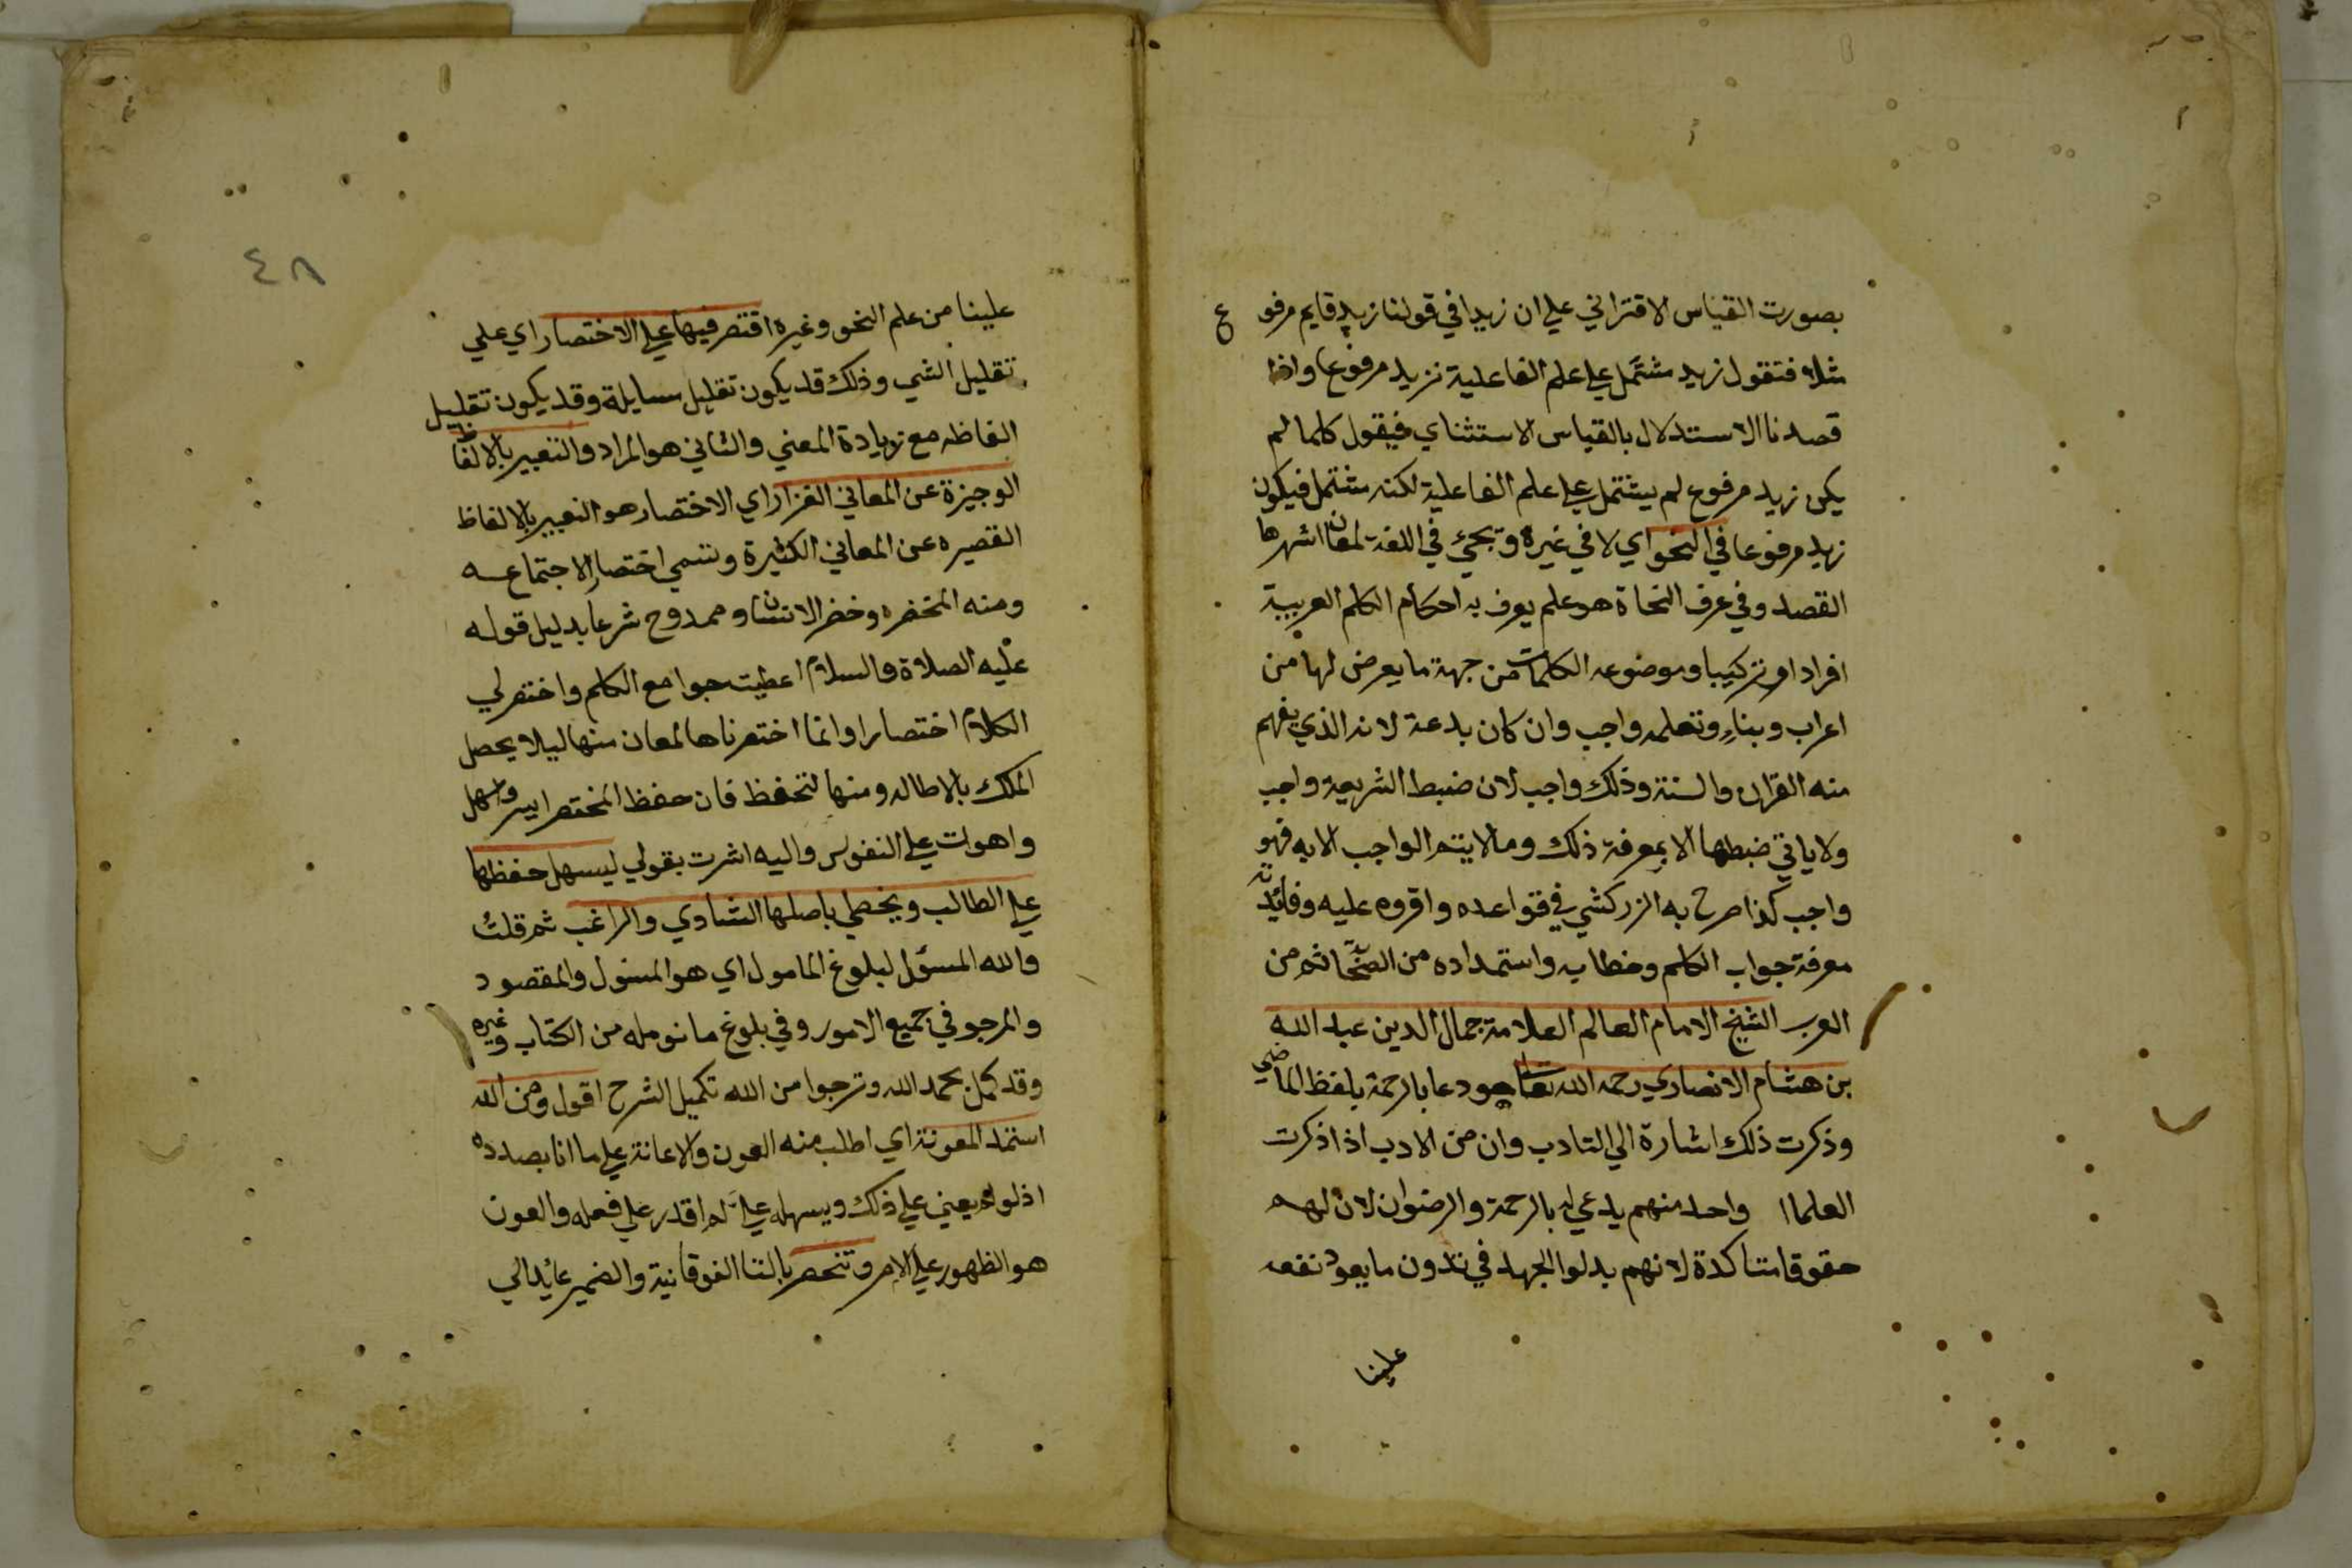 بصورت القياس الاقتراني علي ان زيدا في قولنا زيد قايم مرفوع
مثلا فتقول زيد مشتمل علي علم الفاعلية فزيد مرفوع واذا
قصدنا الاستدلال بالقياس الاستثناي فيقول كلما لم
يكن زيد مرفوع لم يشتمل علي علم الفاعلية لكنه مشتمل فيكون
زيد مرفوعا في النحو اي لا في غيره وتجئ في اللغة لمعان اشهرها
القصد وفي عرف النحاة هو علم يعرف به احكام الكلم العربية
افراد او تركيبا وموضوعه الكلمات من جهة ما يعرض لها من
اعراب وبناء وتعلمه واجب وان كان بدعة لانه الذي يفهم
منه القران والسنة وذلك واجب لان ضبط الشريعة واجب
ولا ياتي ضبطها الا بمعرفة ذلك وما لا يتم الواجب الا به فهو
واجب كذا صرح به الزركشي في قواعده واقروه عليه وفائدته
معرفة جواب الكلم وخطابه واستمداده من ثم من
العرب الشيخ الامام العالم العلامة جمال الدين عبد الله
بن هشام الانصاري رحمه الله تعالي هو دعا بالرحمة بلفظ الماضي
وذكرت ذلك اشارة الي التادب وان من الادب اذا ذكرت
العلماا واحد منهم يدعي له بالرحمة والرضوان لان لهم
حقوقا متاكدة لانهم بدلوا الجهد في تدون ما يعود نفعه
علينا
٤٨
علينا من علم النحو وغيره اقتصر فيها علي الاختصار اي علي
تقليل الشي وذلك قد يكون تقليل مسايلة وقد يكون تقليل
الفاظه مع زيادة المعني والثاني هو المراد والتعبير بالالفاظ
الوجيزة عن المعاني الغزار اي الاختصار هو التعبير بالالفاظ
القصيره عن المعاني الكثيرة وتسمي اختصار الاجتماعه
ومنه المخصره وخصر الانسان وممدوح شرعا بدليل قوله
عليه الصلاة والسلام اعطيت جوامع الكلم واختصر لي
الكلام اختصارا وانما اختصرناها لمعان منها ليلا يحصل
الملك بالاطاله ومنها لتحفظ فان حفظ المختصر ايسر واسهل
واهوت علي النفوس واليه اشرت بقولي ليسهل حفظها
علي الطالب ويخطي باصلها الشادي والراغب ثم قلت
والله المسؤل لبلوغ المامول اي هو المسئول والمقصود
والمرجو في جميع الامور وفي بلوغ ما نومله من الكتاب وغيره
وقد كمل بحمد الله ونرجوا من الله تكميل الشرح اقول ومن الله
استمد المعونة اي اطلب منه العون والاعانة علي ما انا بصدده
اذ لو لم يعني علي ذلك ويسهله علي لم اقدر علي فعله والعون
هو الظهور علي الامر وتنحصر بالتا الفوقانية والضمير عايد الي